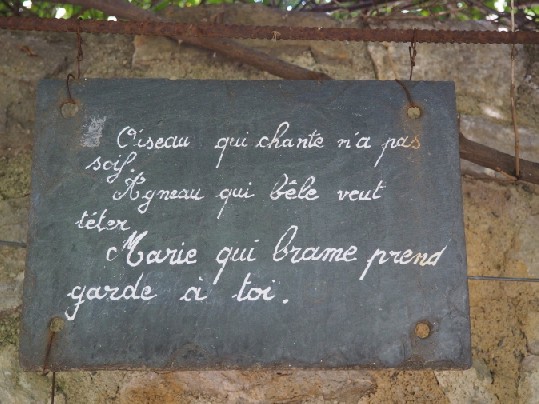 Oiseau qui chante n'a pas
soif.
Agneau qui bêle veut
téter
Marie qui brame prend
garde à toi.